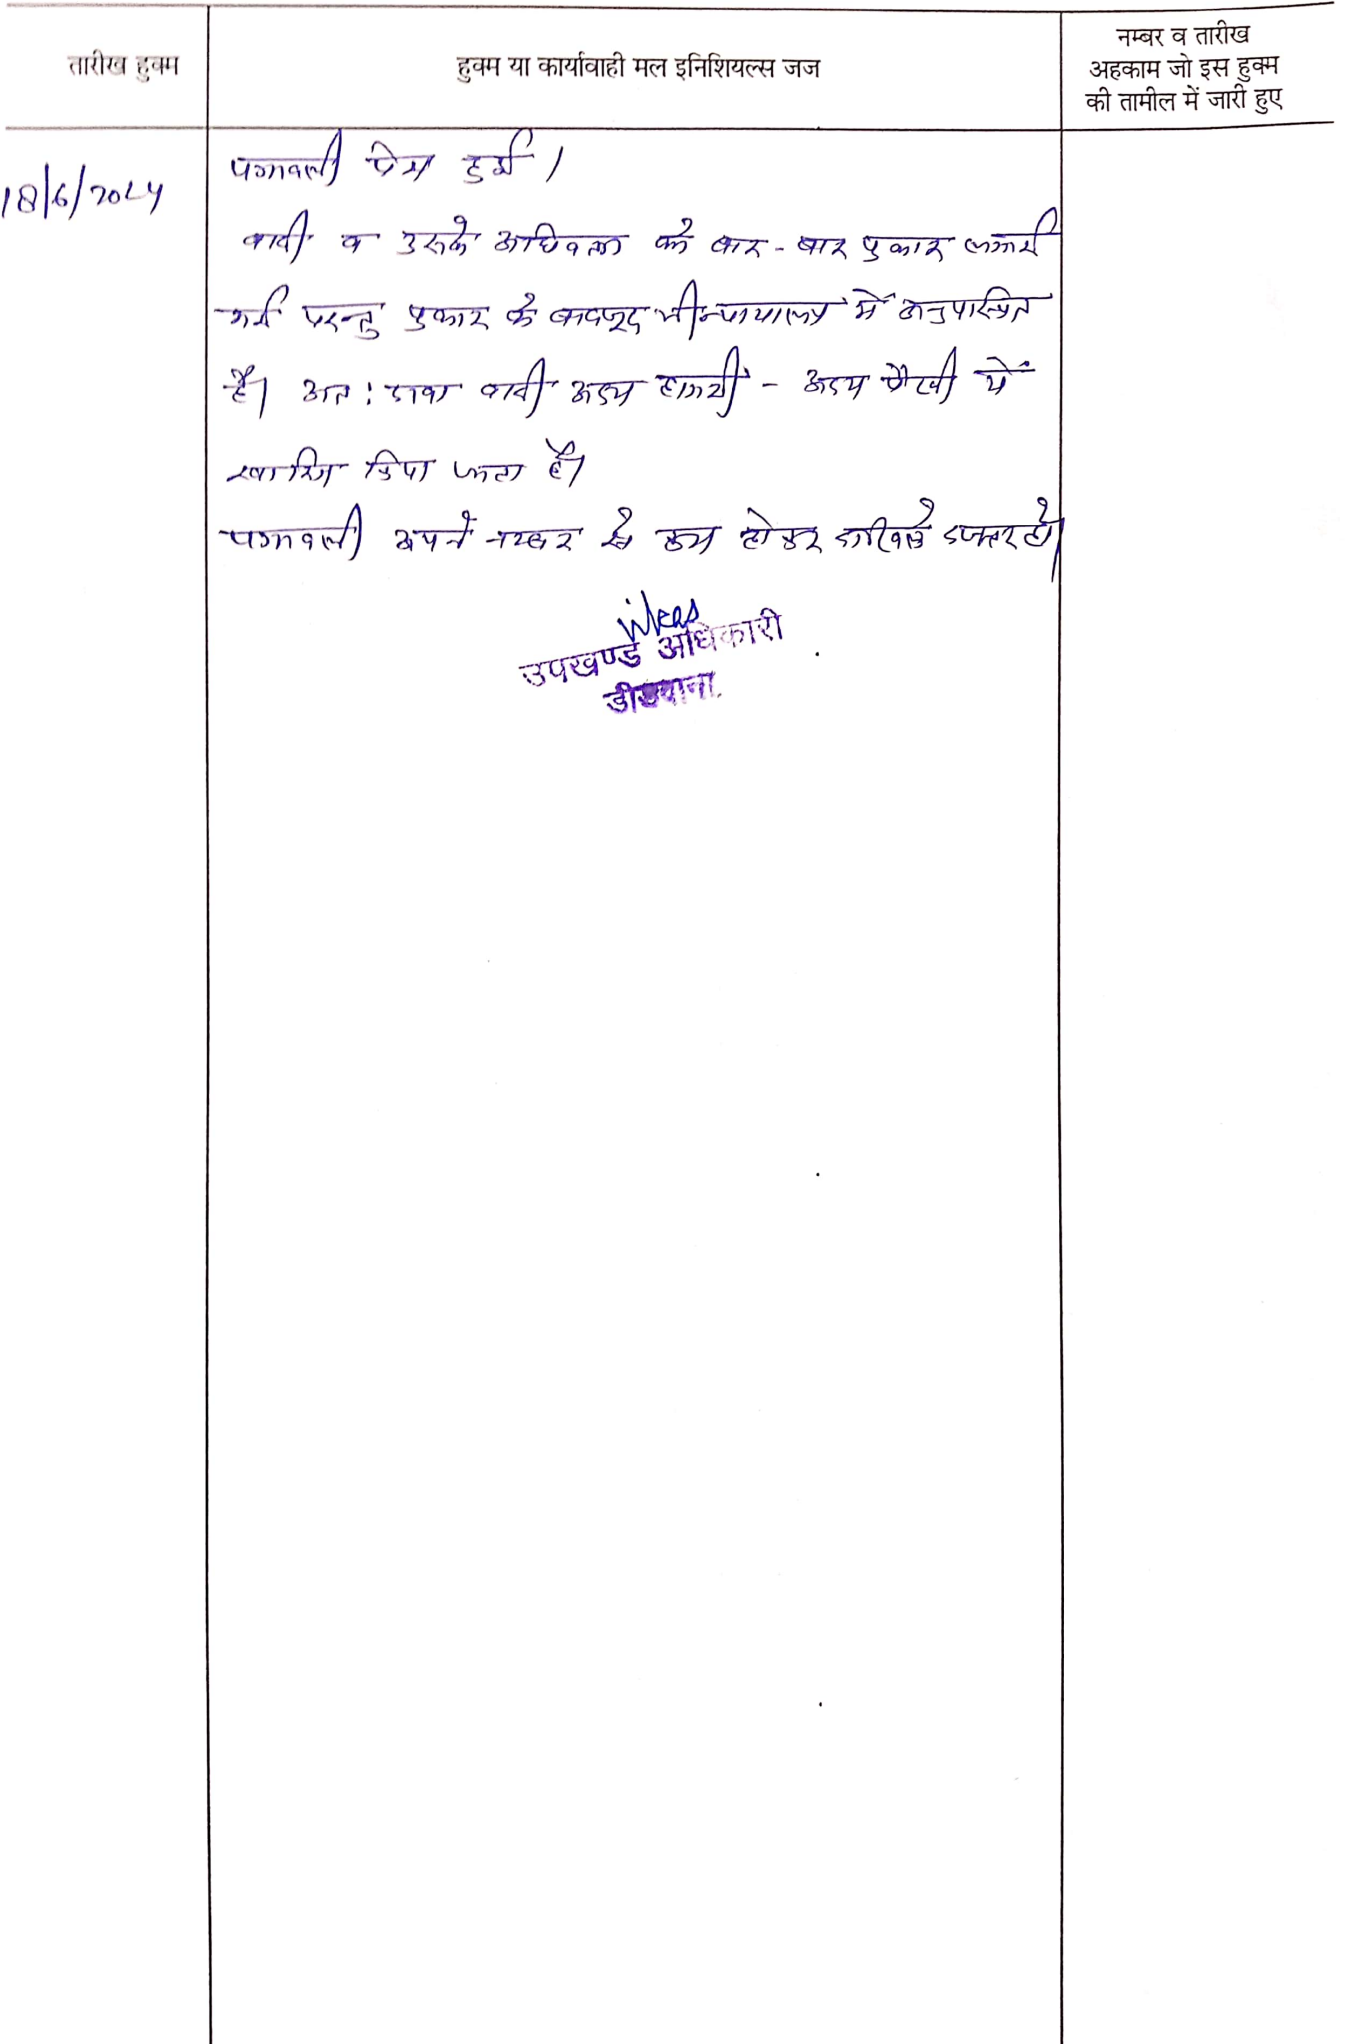 तारीख हुक्म
हुक्म या कार्यावाही मल इनिशियल्स जज
नम्बर व तारीख
अहकाम जो इस हुक्म
की तामील में जारी हुए
18/6/2024
पत्रावली पेश हुई।
वादी व उसके अधिवक्ता को बार-बार पुकार लगायी
गई परन्तु पुकार के बावजूद भी न्यायालय में अनुपस्थित
है। अतः दावा वादी अदम हाजरी - अदम पैरवी में
खारिज किया जाता है।
पत्रावली अपने नम्बर से कम होकर दाखिले दफ्तर हो।
vikas
उपखण्ड अधिकारी
डीडवाना